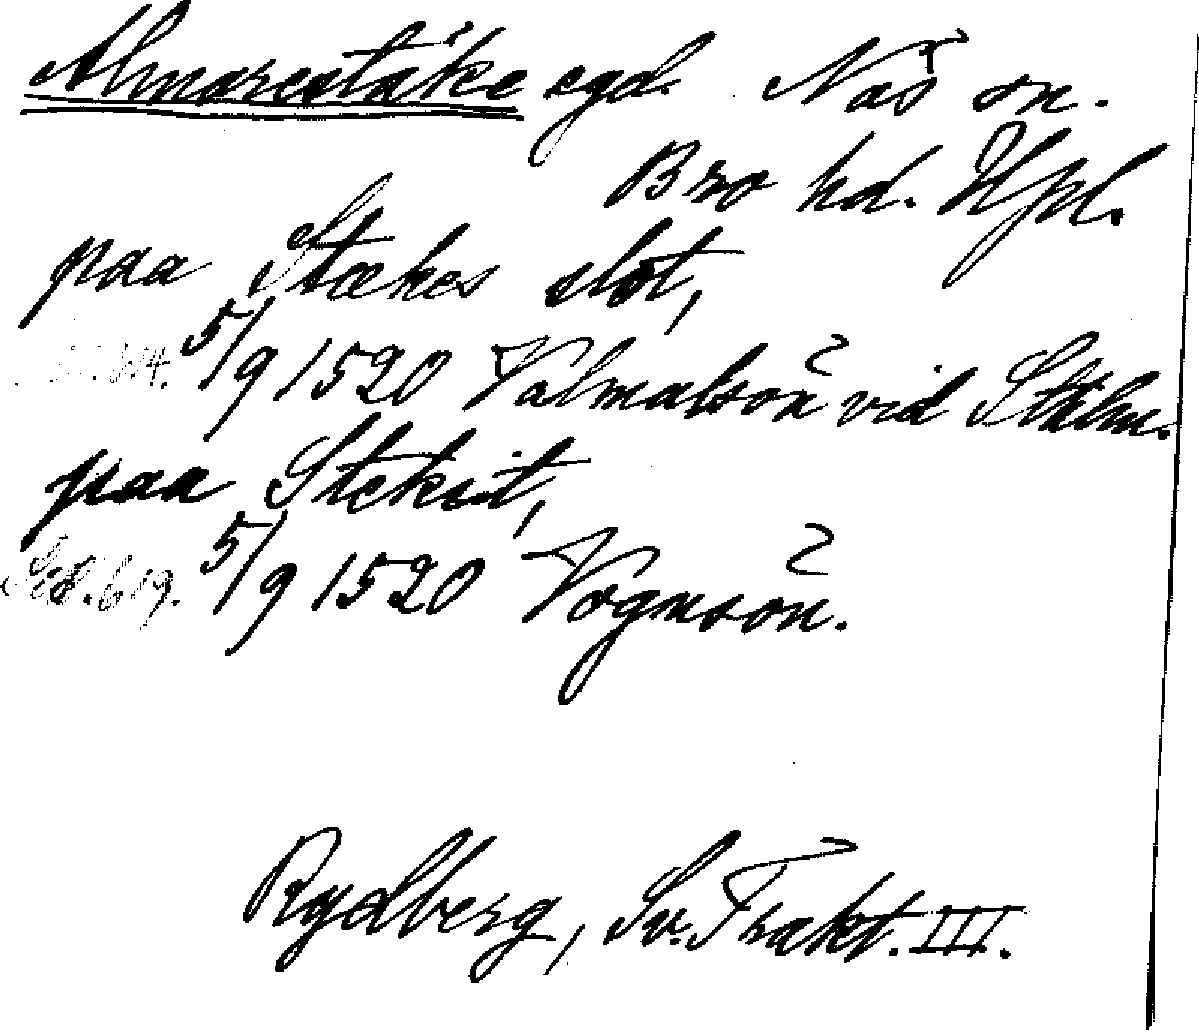 Almarestäke egd. Näs sn.
Bro hd. Upl.
paa Stækes slot,
5/9 1520 Valmatsön vid Sthlm.
paa Steksit,
S. 619. 5/9 1520 Vognsön.
Rydberg, Sv. Trakt. III.